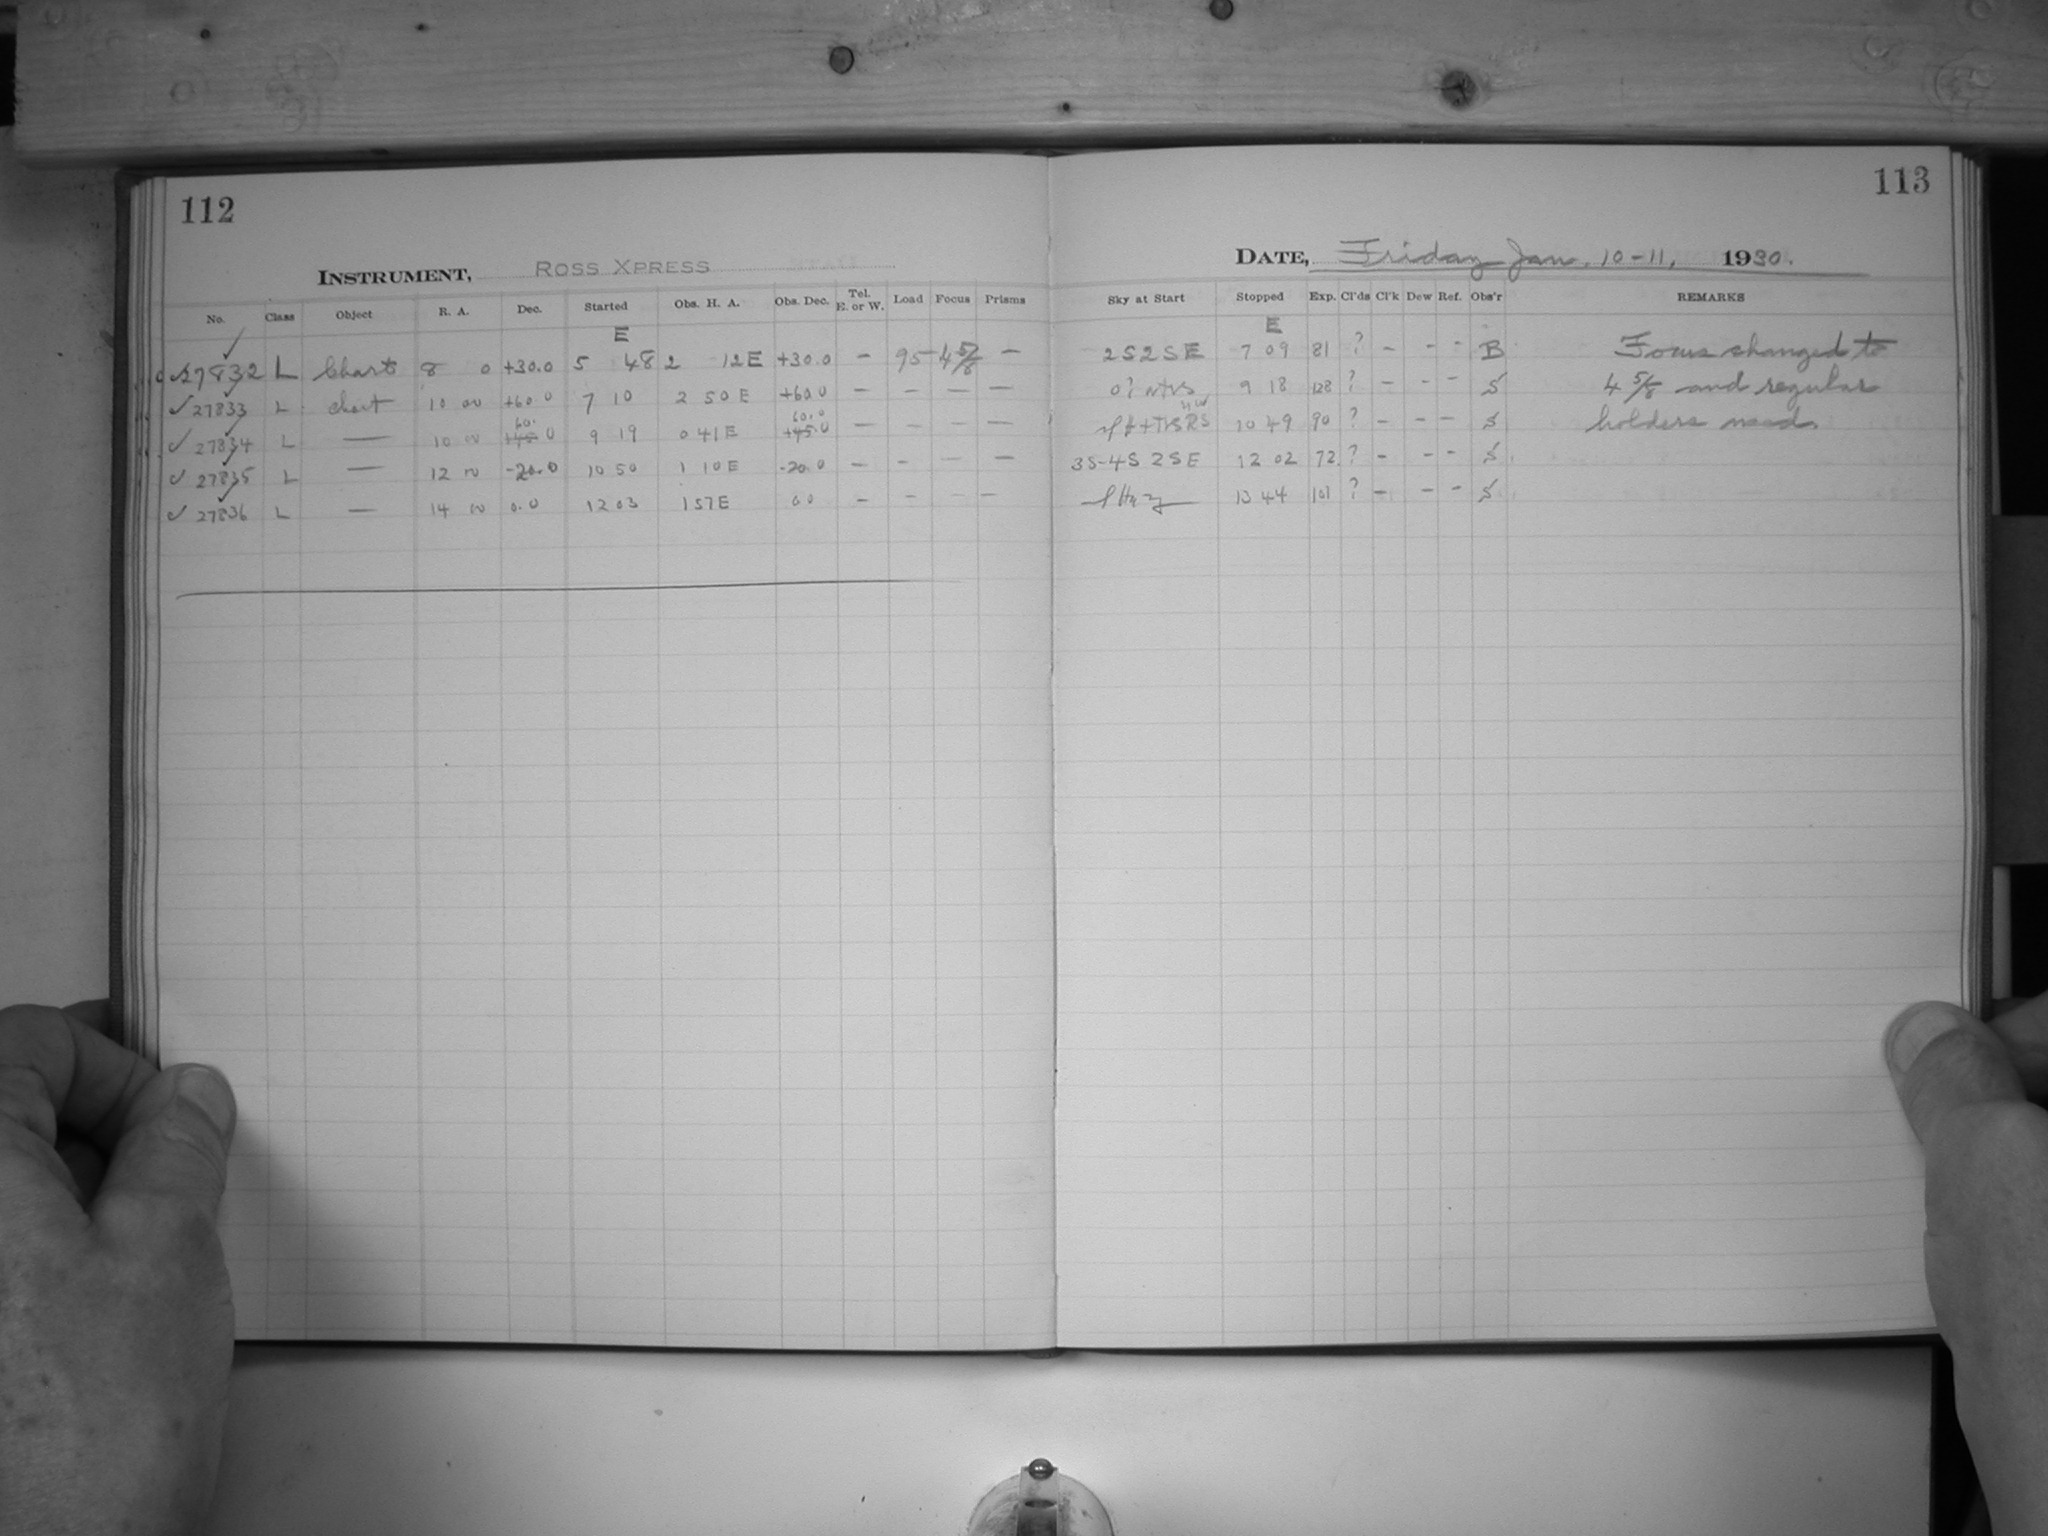 112
INSTRUMENT, ROSS XPRESS
No. Class Object R. A. Dec. Started Obs. H. A. Obs. Dec. Tel. E. or W. Load Focus Prisms
E
✓27832 L Chart 8 0 +30.0 5 48 2 12 E +30.0 – 95 4 5/8 –
✓ 27833 L chart 10 00 +60 0 7 10 2 50 E +60 0 – – – –
60. 60.0
✓ 27834 L — 10 00 +45 0 9 19 0 41 E +45.0 – – – –
✓ 27835 L — 12 00 -20.0 10 50 1 10 E -20.0 – – – –
✓ 27836 L — 14 00 0.0 12 03 1 57 E 0 0 – – – –
113
DATE, Friday Jan. 10-11, 1930.
Sky at Start Stopped Exp. Cl'ds Cl'k Dew Ref. Obs'r REMARKS
E
2S2SE 7 09 81 ? – – – B Focus changed to
9 18 128 ? – – – S 4 5/8 and regular
10 49 90 ? – – – S holders used.
3S-4S 2SE 12 02 72 ? – – – S
13 44 101 ? – – – S